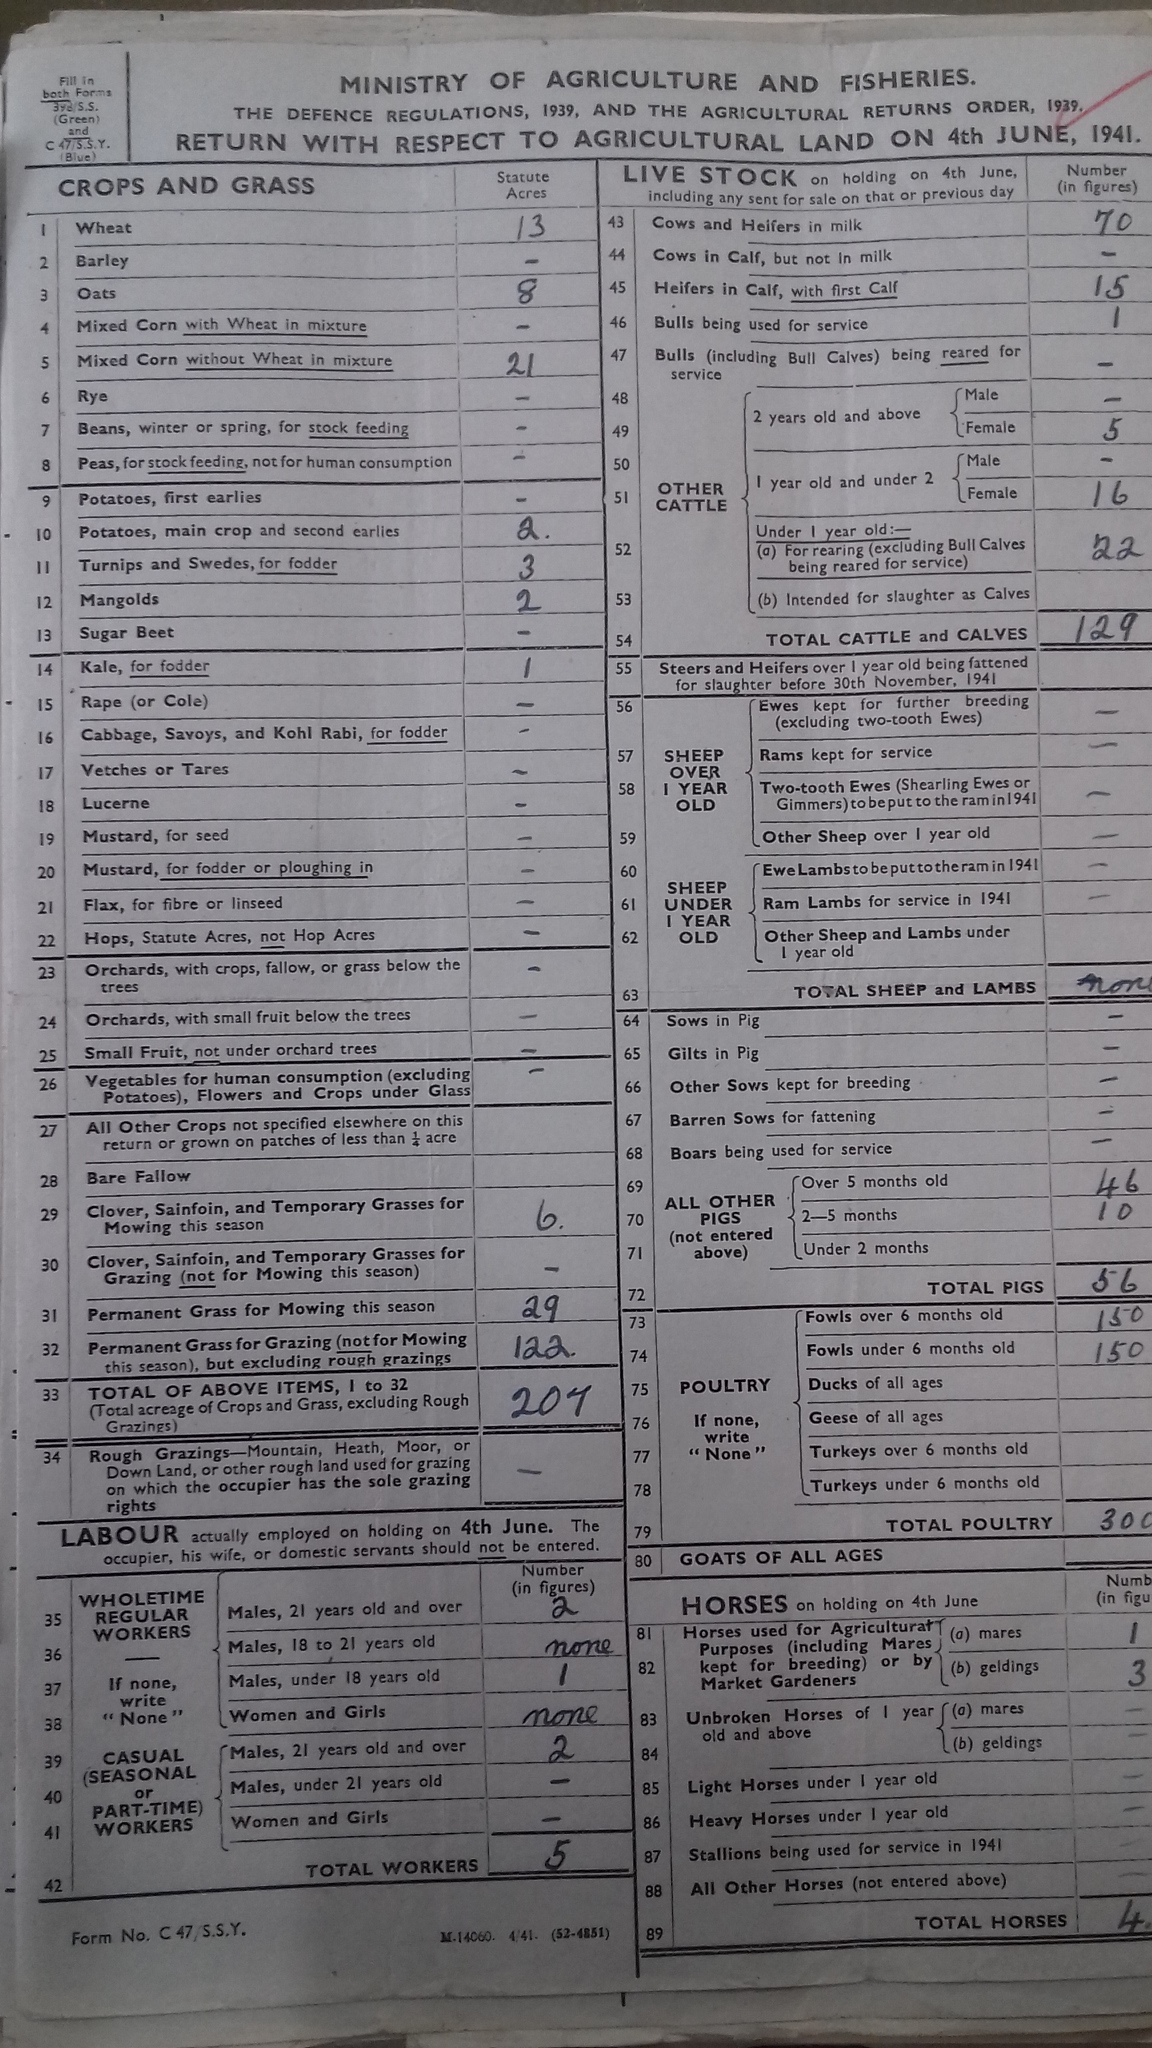 Fill in
both Forms
398/S.S.
(Green)
and
C 47/S.S.Y.
(Blue)
MINISTRY OF AGRICULTURE AND FISHERIES.
THE DEFENCE REGULATIONS, 1939, AND THE AGRICULTURAL RETURNS ORDER, 1939.
RETURN WITH RESPECT TO AGRICULTURAL LAND ON 4th JUNE, 1941.
CROPS AND GRASS Statute Acres
1 Wheat 13
2 Barley –
3 Oats 8
4 Mixed Corn with Wheat in mixture –
5 Mixed Corn without Wheat in mixture 21
6 Rye –
7 Beans, winter or spring, for stock feeding –
8 Peas, for stock feeding, not for human consumption –
9 Potatoes, first earlies –
10 Potatoes, main crop and second earlies 2.
11 Turnips and Swedes, for fodder 3
12 Mangolds 2
13 Sugar Beet –
14 Kale, for fodder 1
15 Rape (or Cole) –
16 Cabbage, Savoys, and Kohl Rabi, for fodder –
17 Vetches or Tares –
18 Lucerne –
19 Mustard, for seed –
20 Mustard, for fodder or ploughing in –
21 Flax, for fibre or linseed –
22 Hops, Statute Acres, not Hop Acres –
23 Orchards, with crops, fallow, or grass below the
trees –
24 Orchards, with small fruit below the trees –
25 Small Fruit, not under orchard trees –
26 Vegetables for human consumption (excluding
Potatoes), Flowers and Crops under Glass –
27 All Other Crops not specified elsewhere on this
return or grown on patches of less than ¼ acre
28 Bare Fallow
29 Clover, Sainfoin, and Temporary Grasses for
Mowing this season 6.
30 Clover, Sainfoin, and Temporary Grasses for
Grazing (not for Mowing this season) –
31 Permanent Grass for Mowing this season 29
32 Permanent Grass for Grazing (not for Mowing
this season), but excluding rough grazings 122.
33 TOTAL OF ABOVE ITEMS, 1 to 32
(Total acreage of Crops and Grass, excluding Rough
Grazings) 207
34 Rough Grazings—Mountain, Heath, Moor, or
Down Land, or other rough land used for grazing
on which the occupier has the sole grazing
rights –
LABOUR actually employed on holding on 4th June. The
occupier, his wife, or domestic servants should not be entered.
Number
(in figures)
WHOLETIME
REGULAR
WORKERS
—
If none,
write
"None"
35 Males, 21 years old and over 2
36 Males, 18 to 21 years old none
37 Males, under 18 years old 1
38 Women and Girls none
CASUAL
(SEASONAL
or
PART-TIME)
WORKERS
39 Males, 21 years old and over 2
40 Males, under 21 years old –
41 Women and Girls –
42 TOTAL WORKERS 5
Form No. C 47/S.S.Y. M-14060. 4/41. (52-4851)
LIVE STOCK on holding on 4th June,
including any sent for sale on that or previous day
Number
(in figures)
43 Cows and Heifers in milk 70
44 Cows in Calf, but not in milk –
45 Heifers in Calf, with first Calf 15
46 Bulls being used for service 1
47 Bulls (including Bull Calves) being reared for
service –
OTHER
CATTLE
2 years old and above
48 Male –
49 Female 5
1 year old and under 2
50 Male –
51 Female 16
Under 1 year old:—
52 (a) For rearing (excluding Bull Calves
being reared for service) 22
53 (b) Intended for slaughter as Calves
54 TOTAL CATTLE and CALVES 129
55 Steers and Heifers over 1 year old being fattened
for slaughter before 30th November, 1941
SHEEP
OVER
1 YEAR
OLD
56 Ewes kept for further breeding
(excluding two-tooth Ewes) –
57 Rams kept for service –
58 Two-tooth Ewes (Shearling Ewes or
Gimmers) to be put to the ram in 1941 –
59 Other Sheep over 1 year old –
SHEEP
UNDER
1 YEAR
OLD
60 Ewe Lambs to be put to the ram in 1941 –
61 Ram Lambs for service in 1941 –
62 Other Sheep and Lambs under
1 year old
63 TOTAL SHEEP and LAMBS none
64 Sows in Pig –
65 Gilts in Pig –
66 Other Sows kept for breeding –
67 Barren Sows for fattening –
68 Boars being used for service –
ALL OTHER
PIGS
(not entered
above)
69 Over 5 months old 46
70 2—5 months 10
71 Under 2 months
72 TOTAL PIGS 56
POULTRY
If none,
write
"None"
73 Fowls over 6 months old 150
74 Fowls under 6 months old 150
75 Ducks of all ages
76 Geese of all ages
77 Turkeys over 6 months old
78 Turkeys under 6 months old
79 TOTAL POULTRY 300
80 GOATS OF ALL AGES
HORSES on holding on 4th June
Numb
(in figu
Horses used for Agricultural
Purposes (including Mares
kept for breeding) or by
Market Gardeners
81 (a) mares 1
82 (b) geldings 3
Unbroken Horses of 1 year
old and above
83 (a) mares –
84 (b) geldings –
85 Light Horses under 1 year old –
86 Heavy Horses under 1 year old –
87 Stallions being used for service in 1941 –
88 All Other Horses (not entered above) –
89 TOTAL HORSES 4.